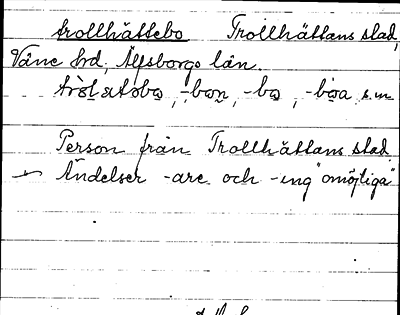 trollhättebo Trollhättans stad,
Väne hd, Älfsborgs län.
-bon, -bo, -boa s.m.
Person från Trollhättans stad.
Ändelser -are och -ing "omöjliga"